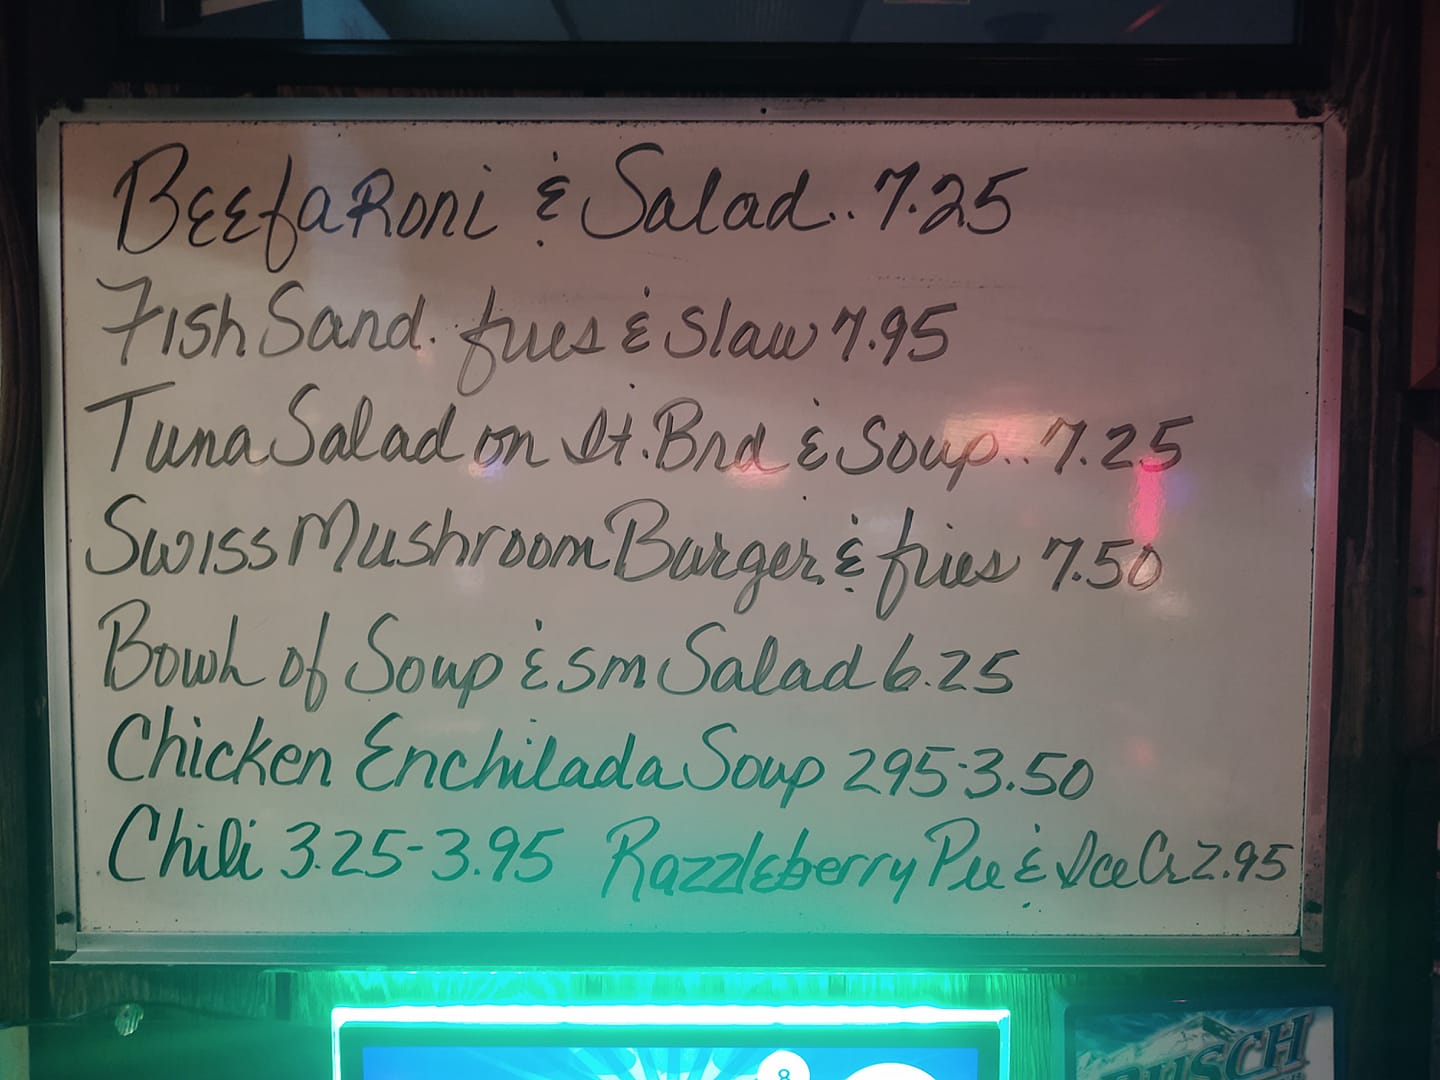 BEEfaRoni & Salad.. 7.25
Fish Sand. fries & Slaw 7.95
Tuna Salad on It. Brd & Soup... 7.25
Swiss Mushroom Burger & fries 7.50
Bowl of Soup & sm Salad 6.25
Chicken Enchilada Soup 295-3.50
Chili 3.25-3.95 Razzleberry Pie & Ice Cr 2.95
8
BUSCH